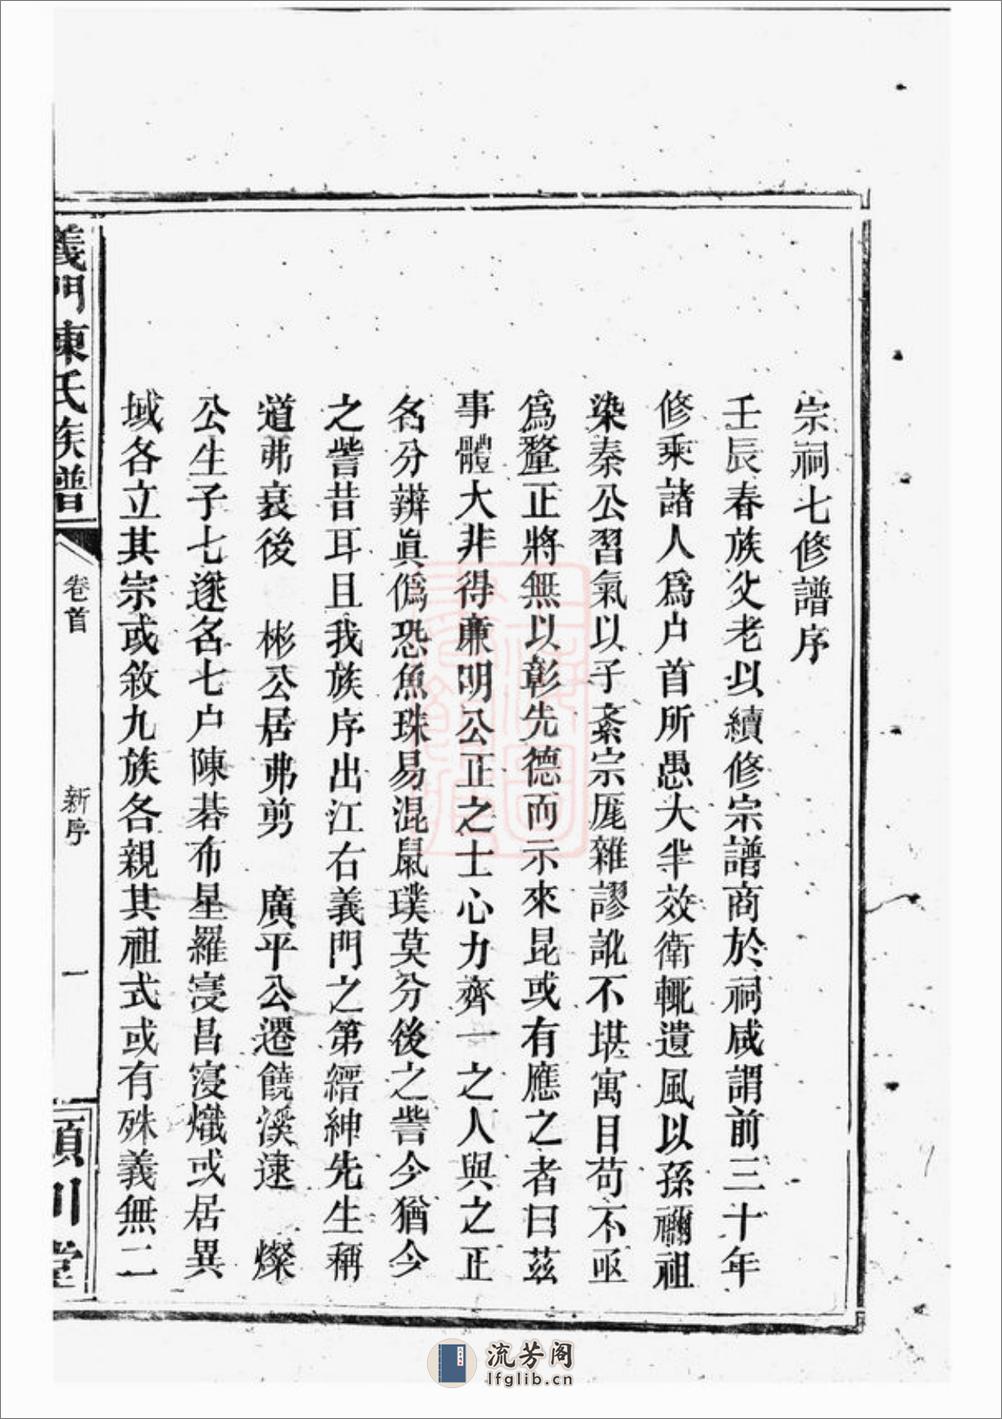 宗祠七修譜序
壬辰春族父老以續修宗譜商於祠咸謂前三十年
修乘諸人爲户首所愚大半效衛輒遺風以孫禰祖
染秦公習氣以子紊宗厖雜謬訛不堪寓目苟不亟
爲釐正將無以彰先德而示來昆或有應之者曰茲
事體大非得廉明公正之士心力齊一之人與之正
名分辨眞僞恐魚珠易混鼠璞莫分後之訾今猶今
之訾昔耳且我族序出江右義門之第縉紳先生稱
道弗衰後 彬公居弗剪 廣平公遷饒溪逮 燦
公生子七遂名七户陳碁布星羅寖昌寖熾或居異
域各立其宗或敘九族各親其祖式或有殊義無二
義門陳氏族譜
卷首
新序
一
潁川堂
流芳阁
lfglib.cn